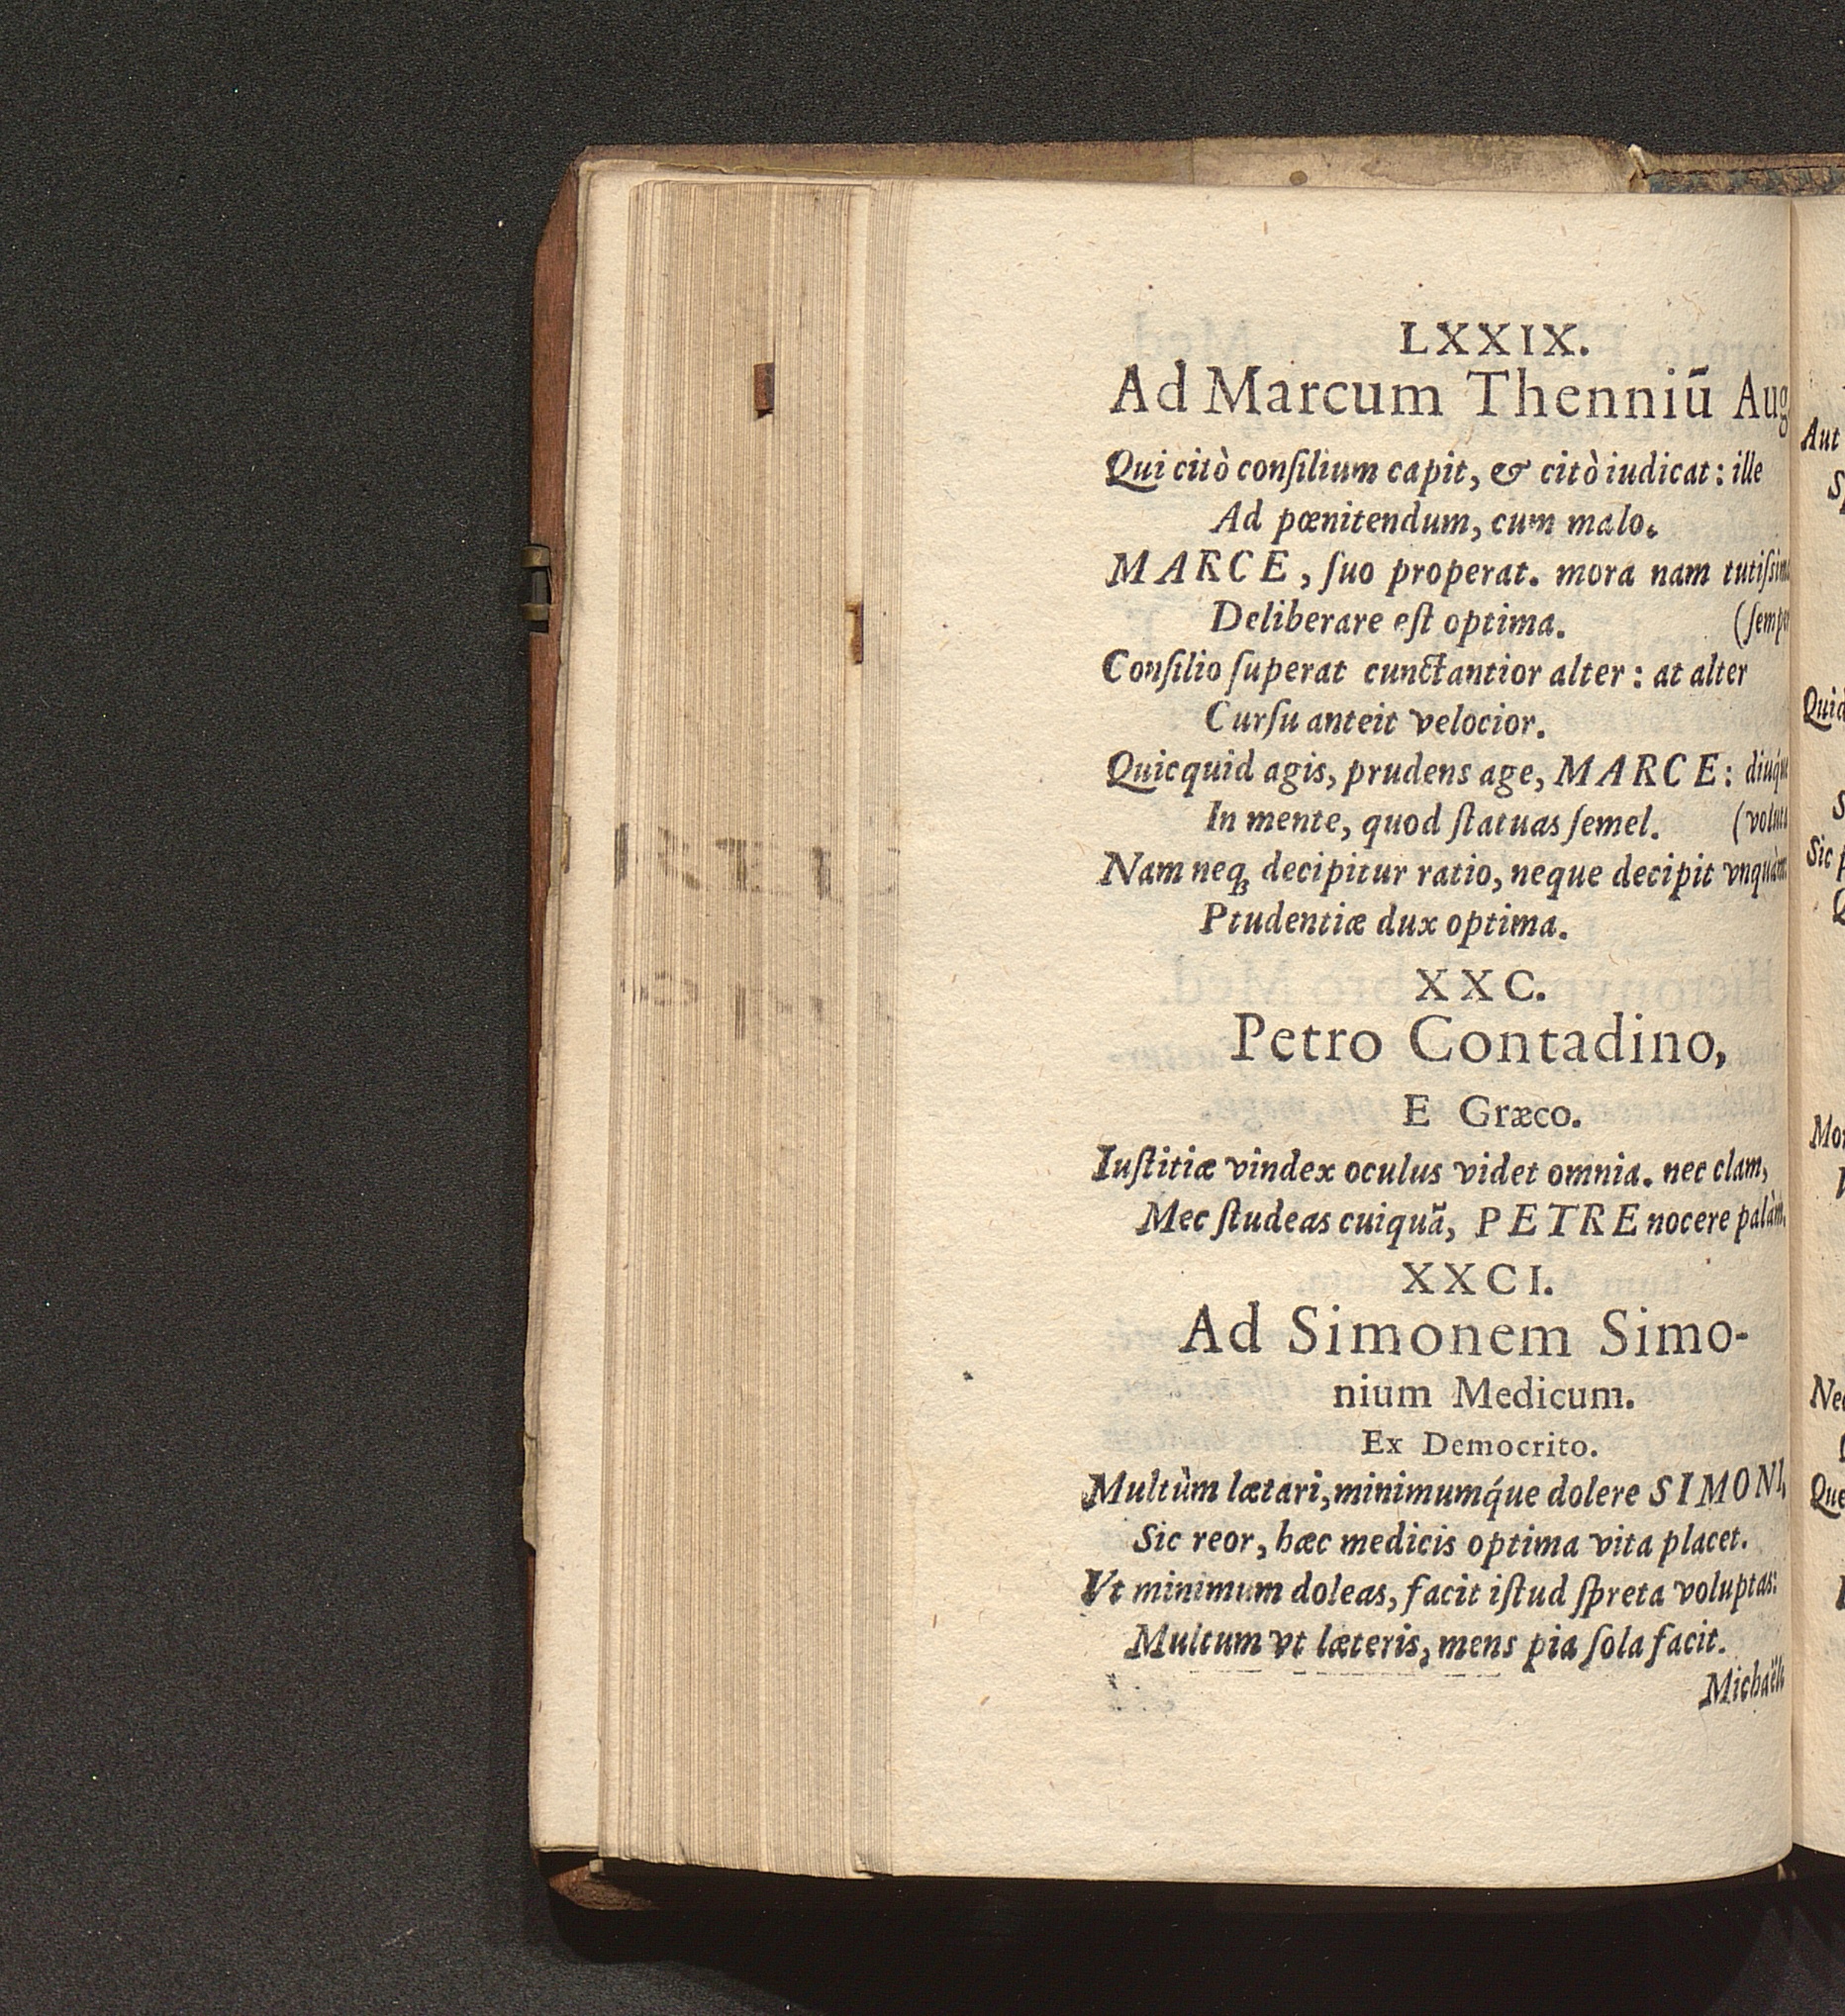 LXXIX.
Ad Marcum Thenniū Aug
Qui citò conſilium capit, & citò iudicat: ille
Ad pœnitendum, cum malo.
MARCE, ſuo properat. mora nam tutiſsim
Deliberare eſt optima. (ſempe
Conſilio ſuperat cunctantior alter: at alter
Curſu anteit velocior.
Quicquid agis, prudens age, MARCE: diuq́ue
In mente, quod ſtatuas ſemel. (voluta
Nam neq; decipitur ratio, neque decipit vnquàm
Ptudentiæ dux optima.
XXC.
Petro Contadino,
E Græco.
Iuſtitiæ vindex oculus videt omnia. nec clam,
Mec ſtudeas cuiquã, PETRE nocere palàm.
XXCI.
Ad Simonem Simo-
nium Medicum.
Ex Democrito.
Multùm lætari, minimumq́ue dolere SIMONI,
Sic reor, hæc medicis optima vita placet.
Vt minimum doleas, facit iſtud ſpreta voluptas:
Multum vt læteris, mens pia ſola facit.
Michaëli
Aut
Quid
Sic
Mor
Nec
Que